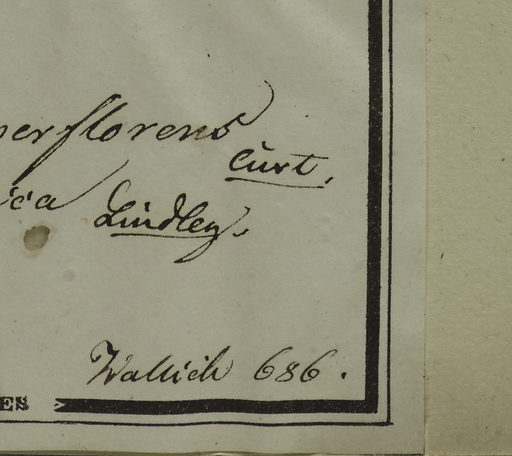 perflorens
Curt.
ica Lindley.
Wallich 686.
ES